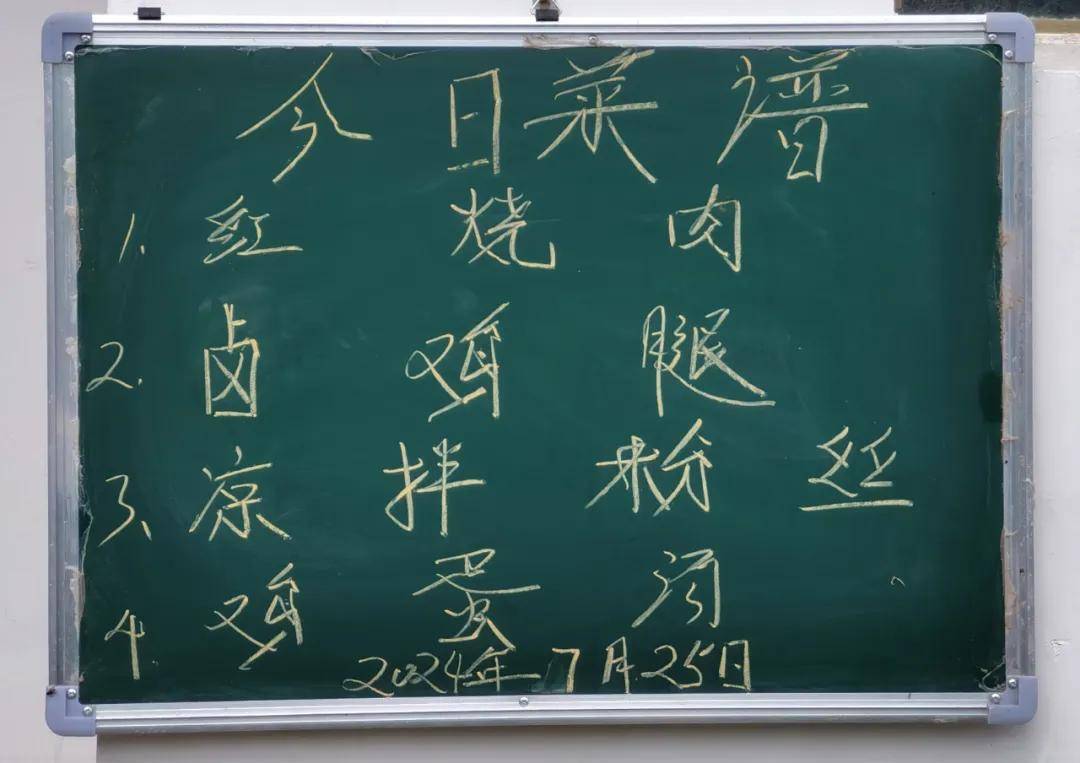 今日菜谱
1. 红烧肉
2. 卤鸡腿
3、凉拌粉丝
4. 鸡蛋汤
2024年7月25日